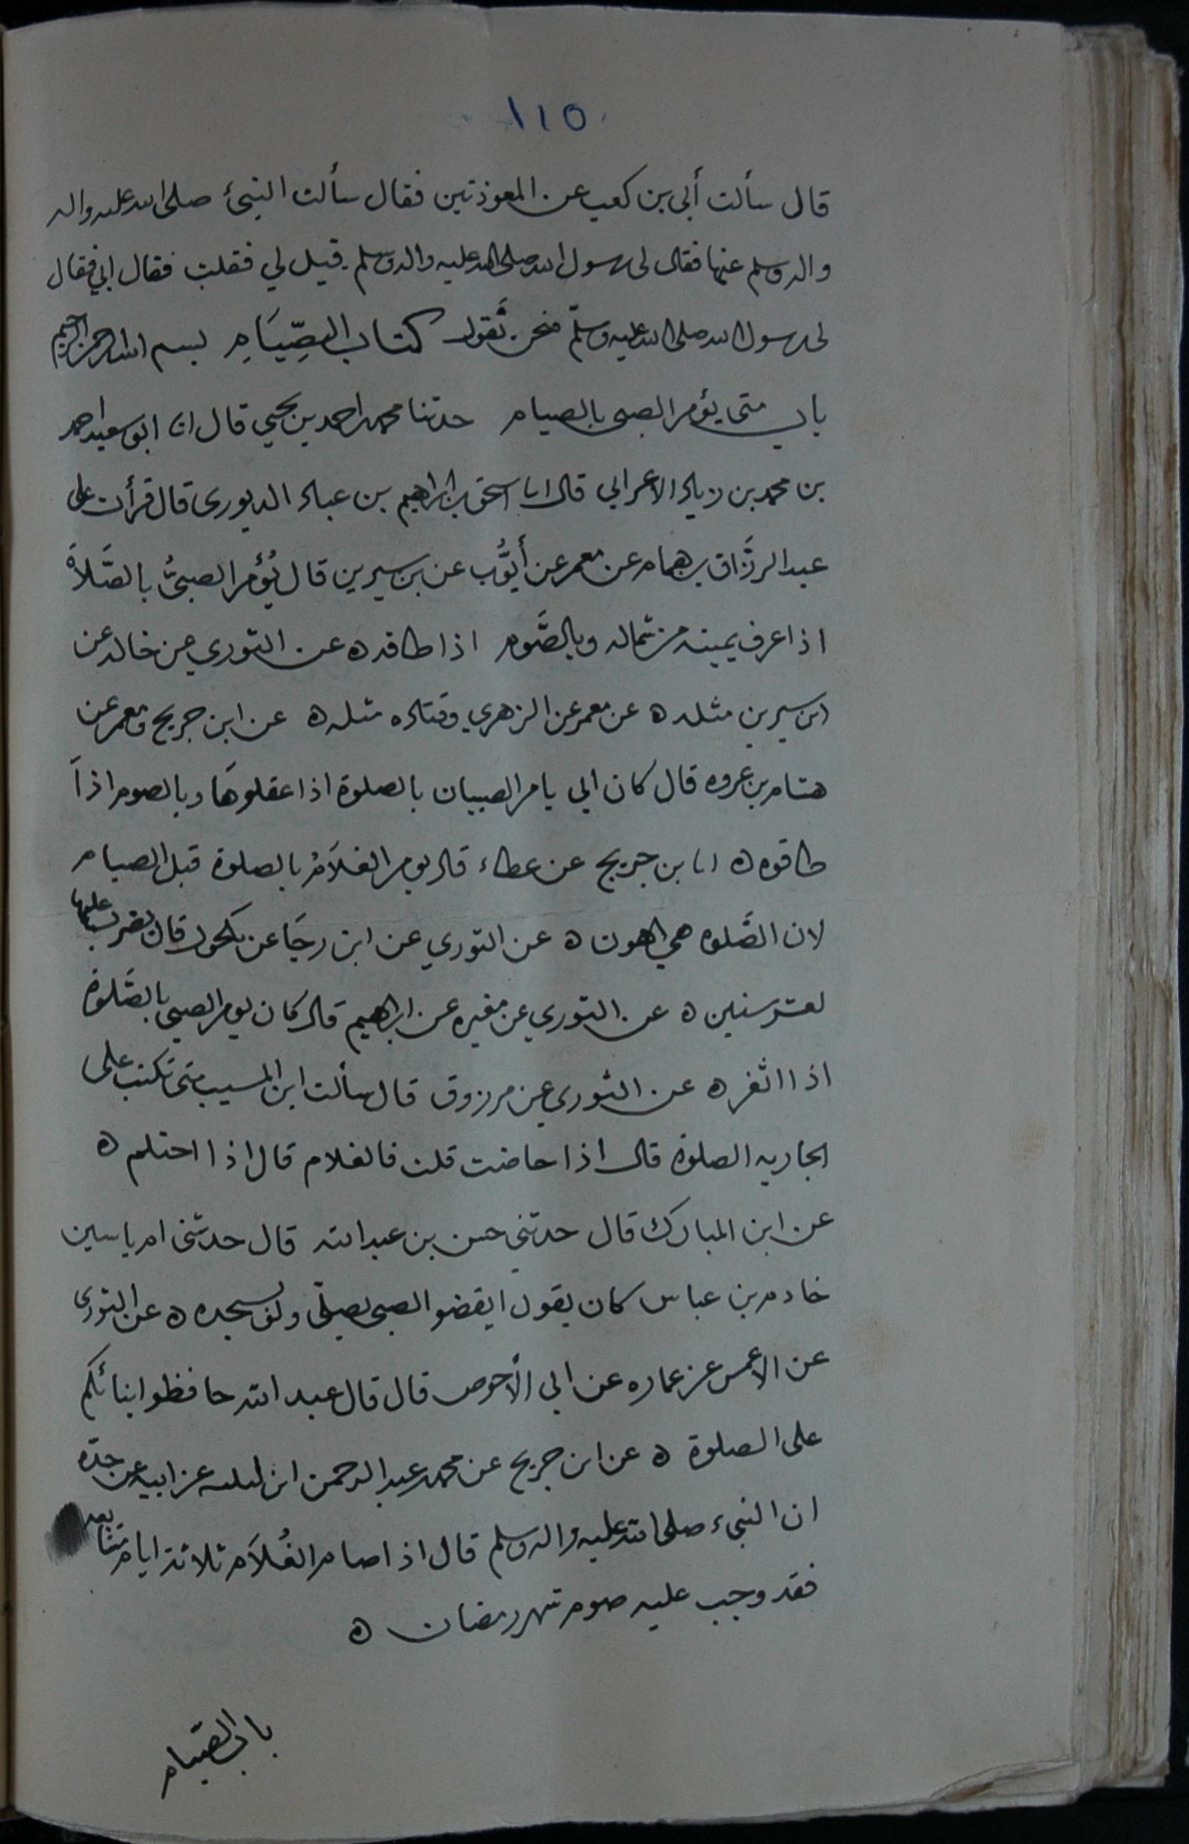 ١١٥
قال سألت أبي بن كعب عن المعوذتين فقال سألت النبئ صلى الله عليه واله
واله وسلم عنها فقال لى رسول الله صلى الله عليه واله وسلم قيل لي فقلت فقال ابي فقال
لى رسول الله صلى الله عليه وسلم فنحن نَقول كتاب الصِّيَامِ بسم الله الرحمن الرحيم
باب متى يؤمر الصبى بالصيام حدثنا محمد احمد بن يحيي قال انا ابو سعيد احمد
بن محمد بن زياد الاعرابي قال انا اسحق بن ابراهيم بن عباد الدبورى قال قرأت على
عبد الرزَّاق بن همام عن معمر عن أيُّوب عن بن سيرين قال يُؤمر الصبيُّ بالصَّلاَة
اذا عرف يمينه من شماله وبالصَّوم اذا طاقه ه عن الثوري عن خالد عن
ابن سيرين مثله ه عن معمر عن الزهري وقتاده مثله ه عن ابن جريج ومعمر عن
هشام بن عروه قال كان ابي يامر الصبيان بالصلوة اذا عقلوهَا وبالصوم اذاَ
طاقوه ه انا بن جريج عن عطاء قال يومر الغلاَمُ بالصلوة قبل الصيام
لان الصَّلوه هي اهون ه عن الثوري عن ابن رجَا عن مكحول قال يضرب عليها
لعشر سنين ه عن الثوري عن مغيره عن ابراهيم قال كان يومر الصبي بالصَّلوة
اذا اثغر ه عن الثورى عن مرزوق قال سألت ابن المسيب متى تكتب على
الجاريه الصلوة قال اذا حاضت قلت فالغلام قال اذا احتلم ه
عن ابن المبارك قال حدثني حسن بن عبد الله قال حدثنى ام ياسين
خادم بن عباس كان يقول ايقضو الصبى يصلّى ولو بسجده ه عن الثورى
عن الاعمس عن عماره عن ابي الأحوص قال قال عبد الله حافظوا ابنائكم
على الصلوة ه عن ابن جريج عن محمد عبد الرحمن ابن لبيبه عن ابيه عن جدّه
ان النبيء صلى الله عليه واله وسلم قال اذا صام الغُلاَم ثلاثة ايام متتابعه
فقد وجب عليه صوم شهر رمضان ه
باب الصّيام